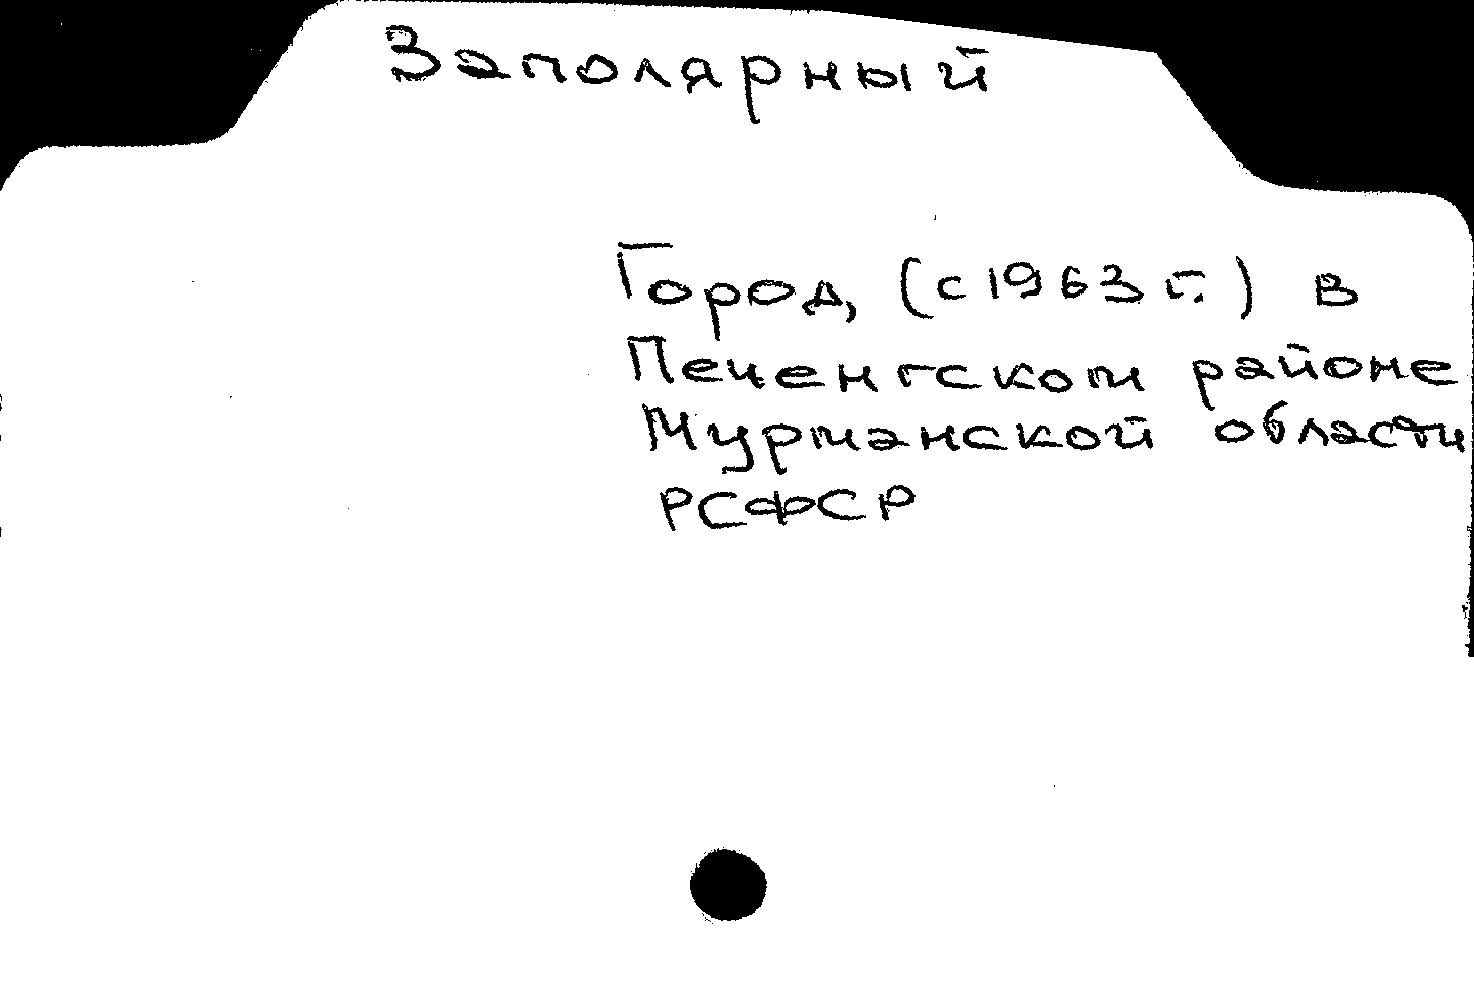 Заполярный
Город, (с 1963 г.) в
Печенгском районе
Мурманской области
РСФСР